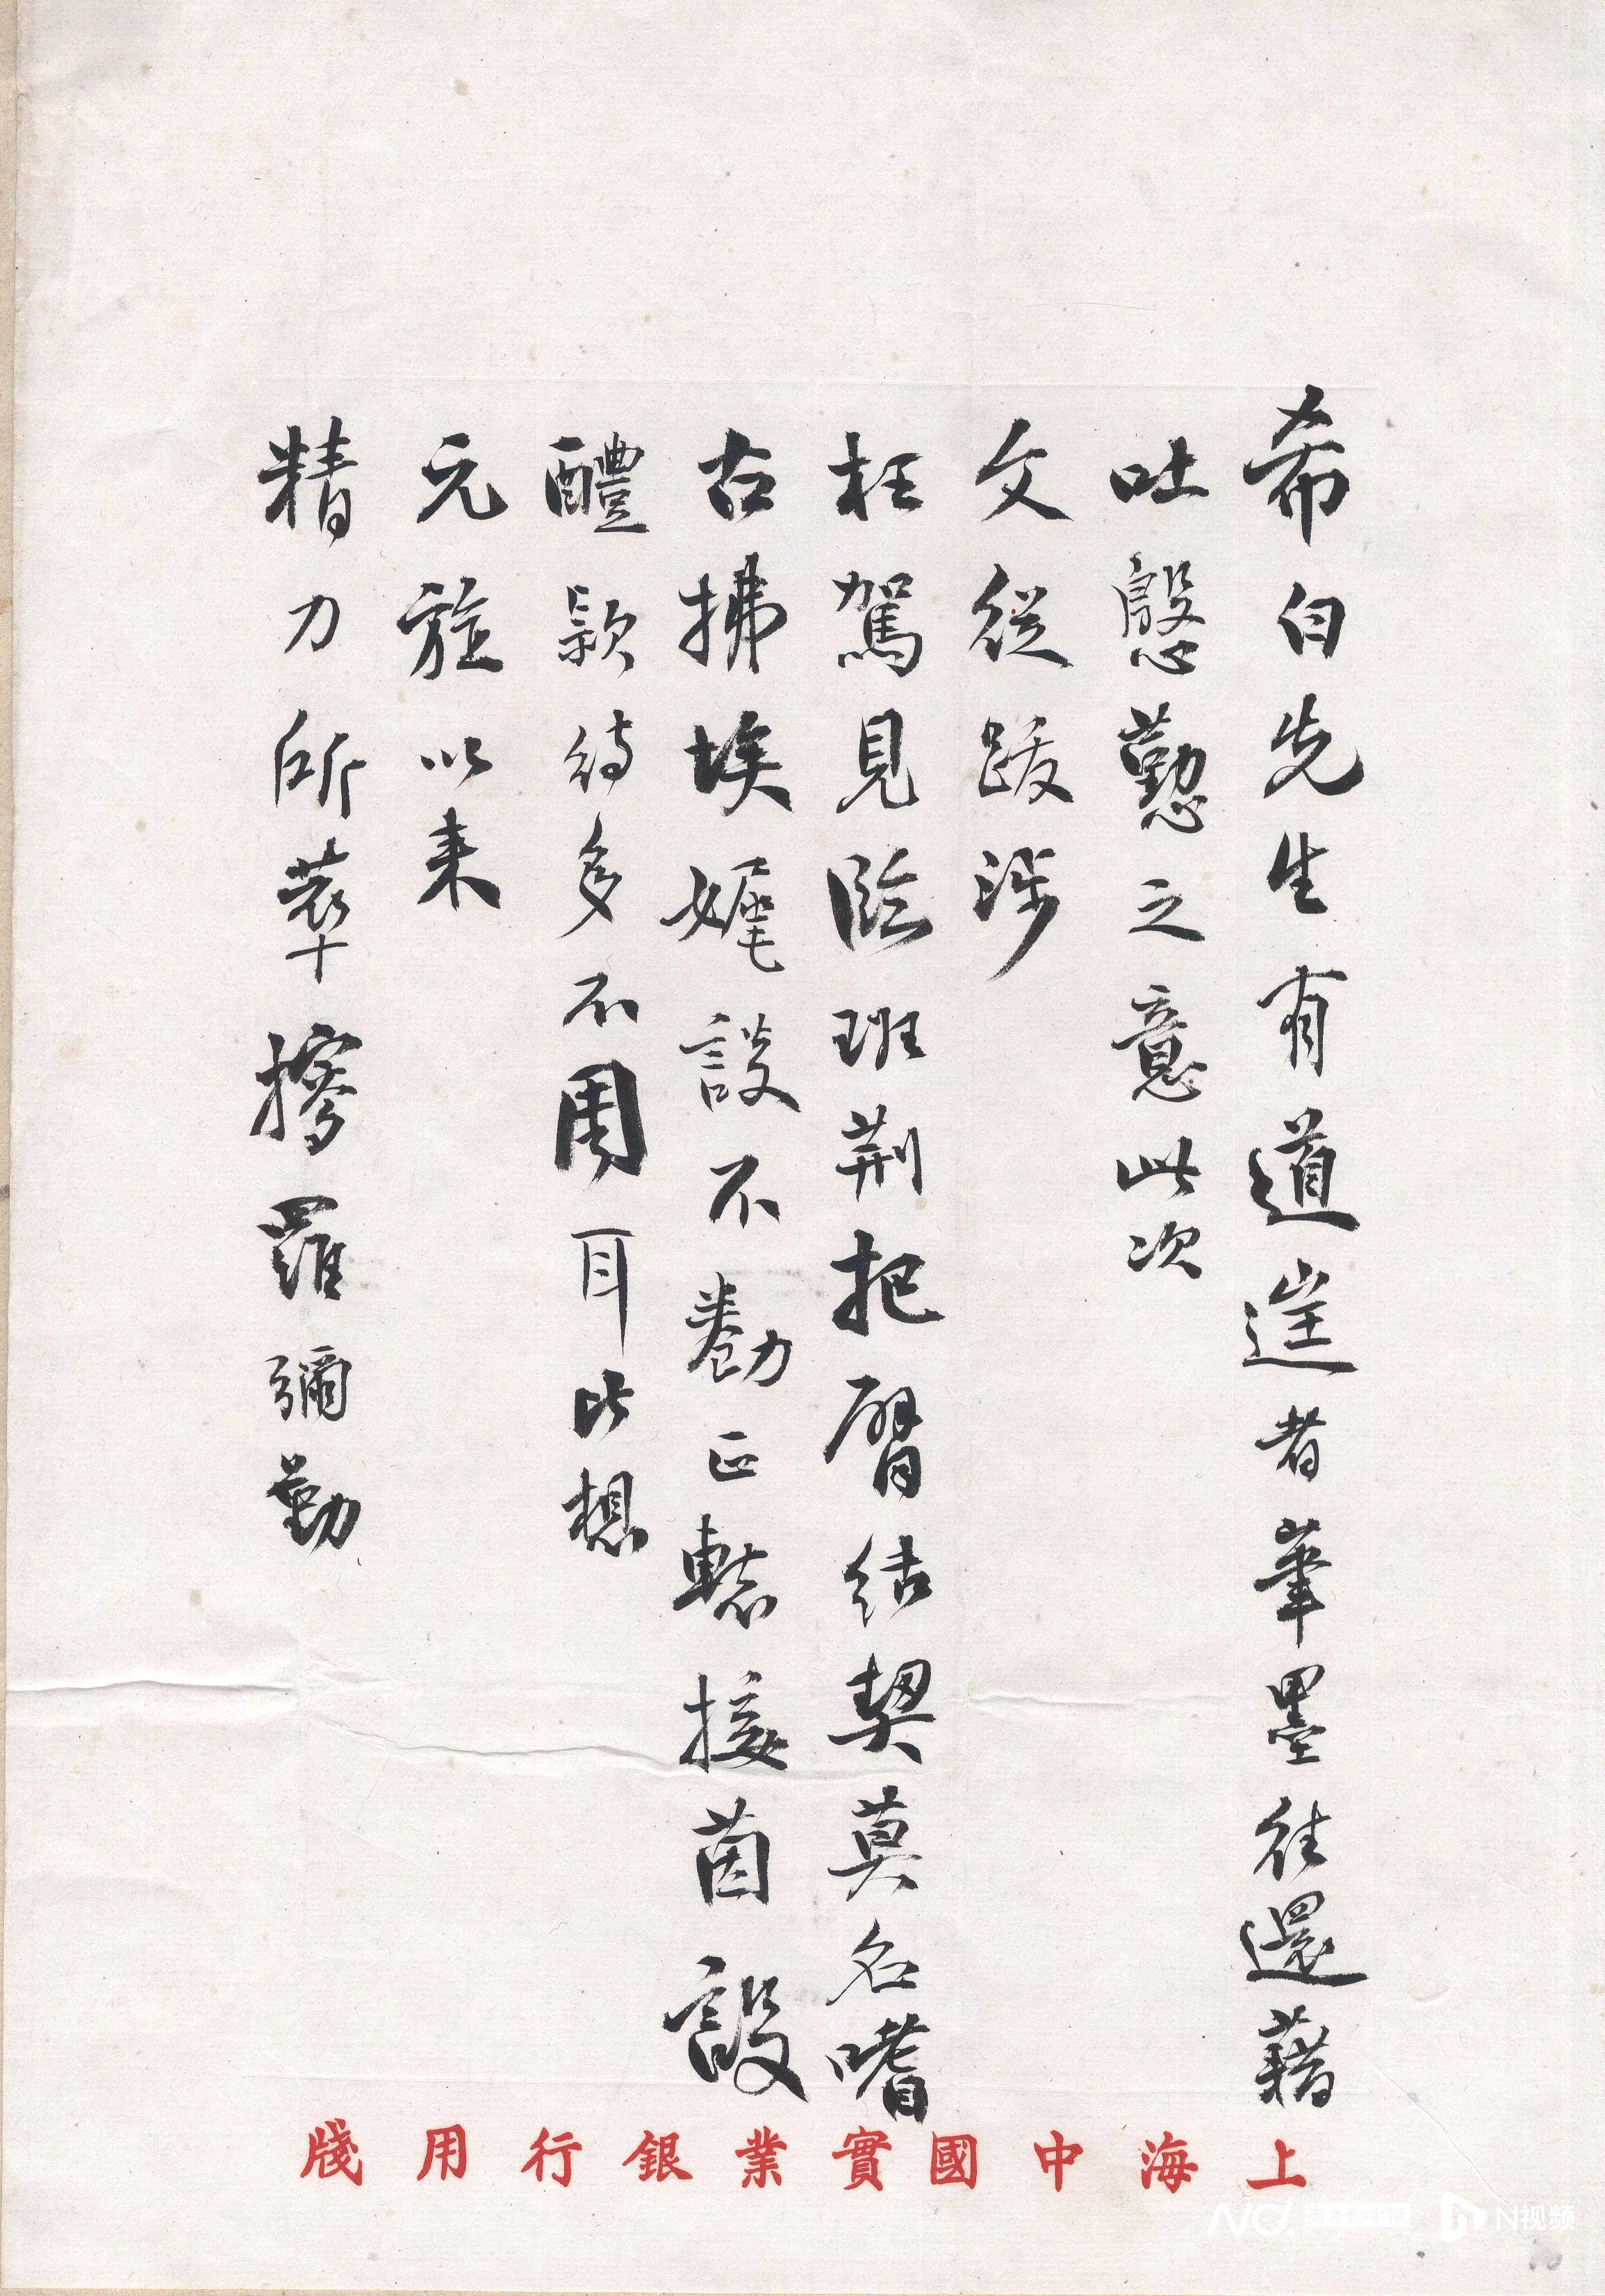 希白先生有道逞者筆墨往還藉
吐慇懃之意此次
文從跋涉
枉駕見臨班荆把臂結契莫名嗜
古拂埃娓談不勌正轄接茵設
醴款待多不周耳比想
元旌以来
精力所萃搜羅彌勤
上海中國實業銀行用牋
N视频